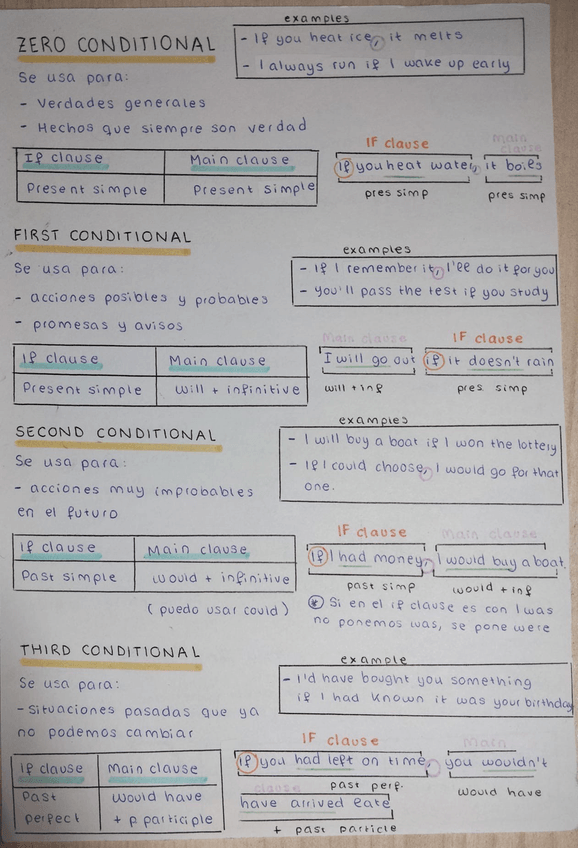 examples
ZERO CONDITIONAL
- If you heat ice, it melts
- I always run if I wake up early
Se usa para:
- Verdades generales
- Hechos que siempre son verdad
If clause Main clause
Present simple Present simple
IF clause Main clause
If you heat water, it boils
pres simp pres simp
FIRST CONDITIONAL
examples
Se usa para:
- If I remember it, I'll do it for you
- You'll pass the test if you study
- acciones posibles y probables
- promesas y avisos
If clause Main clause
Present simple will + infinitive
Main clause IF clause
I will go out if it doesn't rain
will + inf pres simp
SECOND CONDITIONAL
examples
- I will buy a boat if I won the lottery
- If I could choose, I would go for that
one.
Se usa para:
- acciones muy improbables
en el futuro
If clause Main clause
Past simple would + infinitive
(puedo usar could)
IF clause Main clause
If I had money, I would buy a boat.
past simp would + inf
* Si en el if clause es con I was
no ponemos was, se pone were
THIRD CONDITIONAL
example
- I'd have bought you something
if I had known it was your birthday
Se usa para:
- Situaciones pasadas que ya
no podemos cambiar
If clause Main clause
Past would have
perfect + p participle
IF clause Main
If you had left on time, you wouldn't
clause past perf. would have
have arrived late
+ past particle